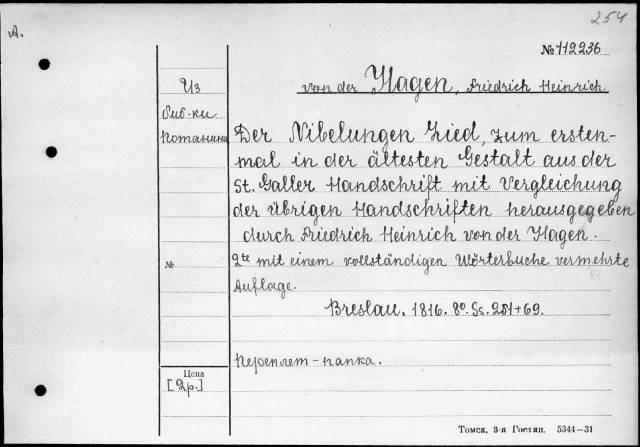 254
A.
№ 112236
Из
биб-ки
Потанина
von der Hagen, Friedrich Heinrich.
Der Nibelungen Lied, zum ersten-
mal in der ältesten Gestalt aus der
St. Galler Handschrift mit Vergleichung
der übrigen Handschriften herausgegeben
durch Friedrich Heinrich von der Hagen.
2te mit einem vollständigen Wörterbuche vermehrte
Auflage.
Breslau. 1816. 8º. Ss. 251+69.
№
Переплет-папка.
Цена
[2р.]
Томск, 3-я Гостип. 5344—31